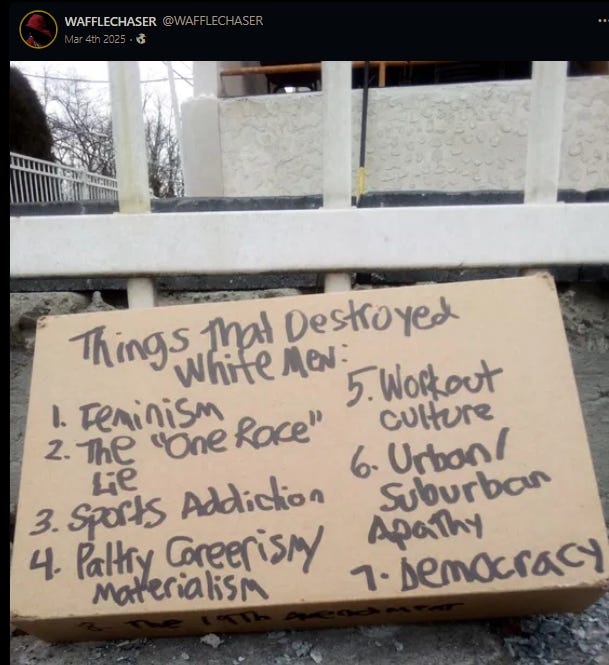 WAFFLECHASER @WAFFLECHASER
Mar 4th 2025 ·
Things That Destroyed
White Men:
1. Feminism
2. The "One Race"
Lie
3. Sports Addiction
4. Paltry Careerism/
Materialism
5. Workout
Culture
6. Urban/
Suburban
Apathy
7. Democracy
8 The 19th Amendment